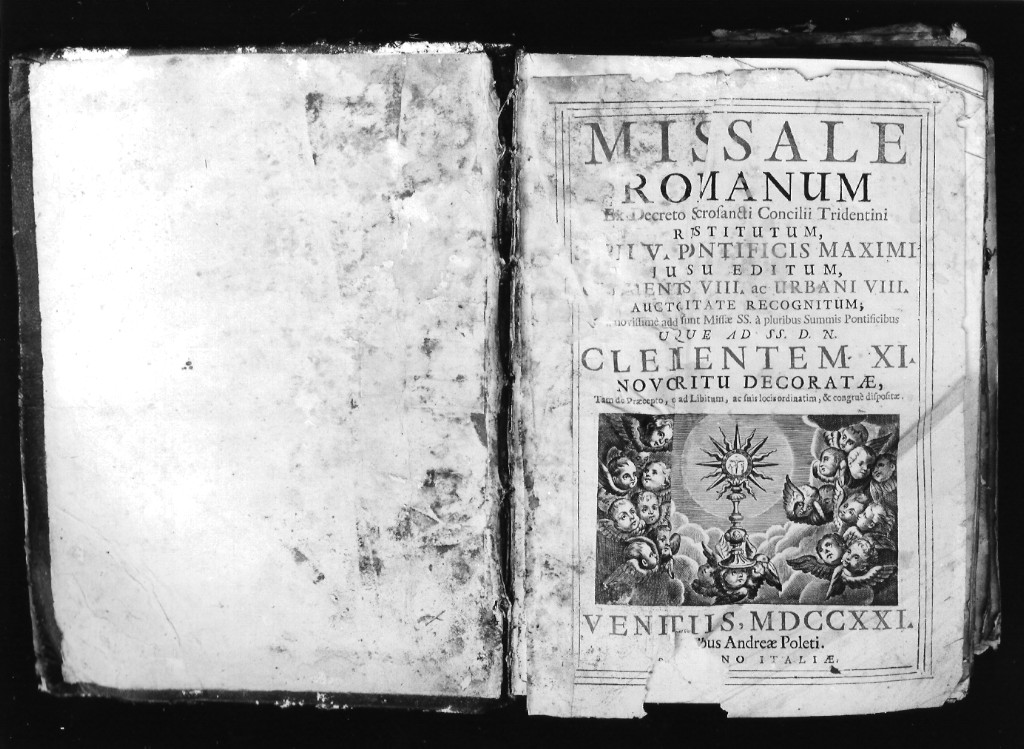 MISSALE
ROMANUM
Ex Decreto Scrosancti Concilii Tridentini
RSTITUTUM,
PII V. PONTIFICIS MAXIMI
JUSU EDITUM,
MENTS VIII. ac URBANI VIII.
AUCTOITATE RECOGNITUM;
novissime add sunt Missæ SS. à pluribus Summis Pontificibus
UQUE AD SS. D. N.
CLEMENTEM XI.
NOVO RITU DECORATÆ,
Tam de Præcepto, ad Libitum, ac suis locis ordinatim, & congruè dispositæ.
VENETIIS, MDCCXXI.
bus Andreæ Poleti.
NO ITALIÆ.